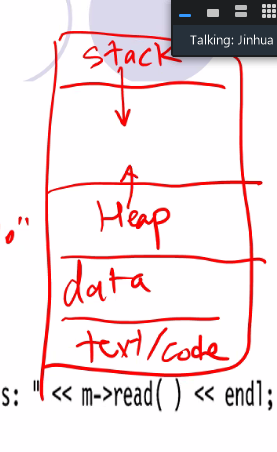 Talking: Jinhua
stack
."
Heap
data
text/code
s: " << m->read( ) << endl;